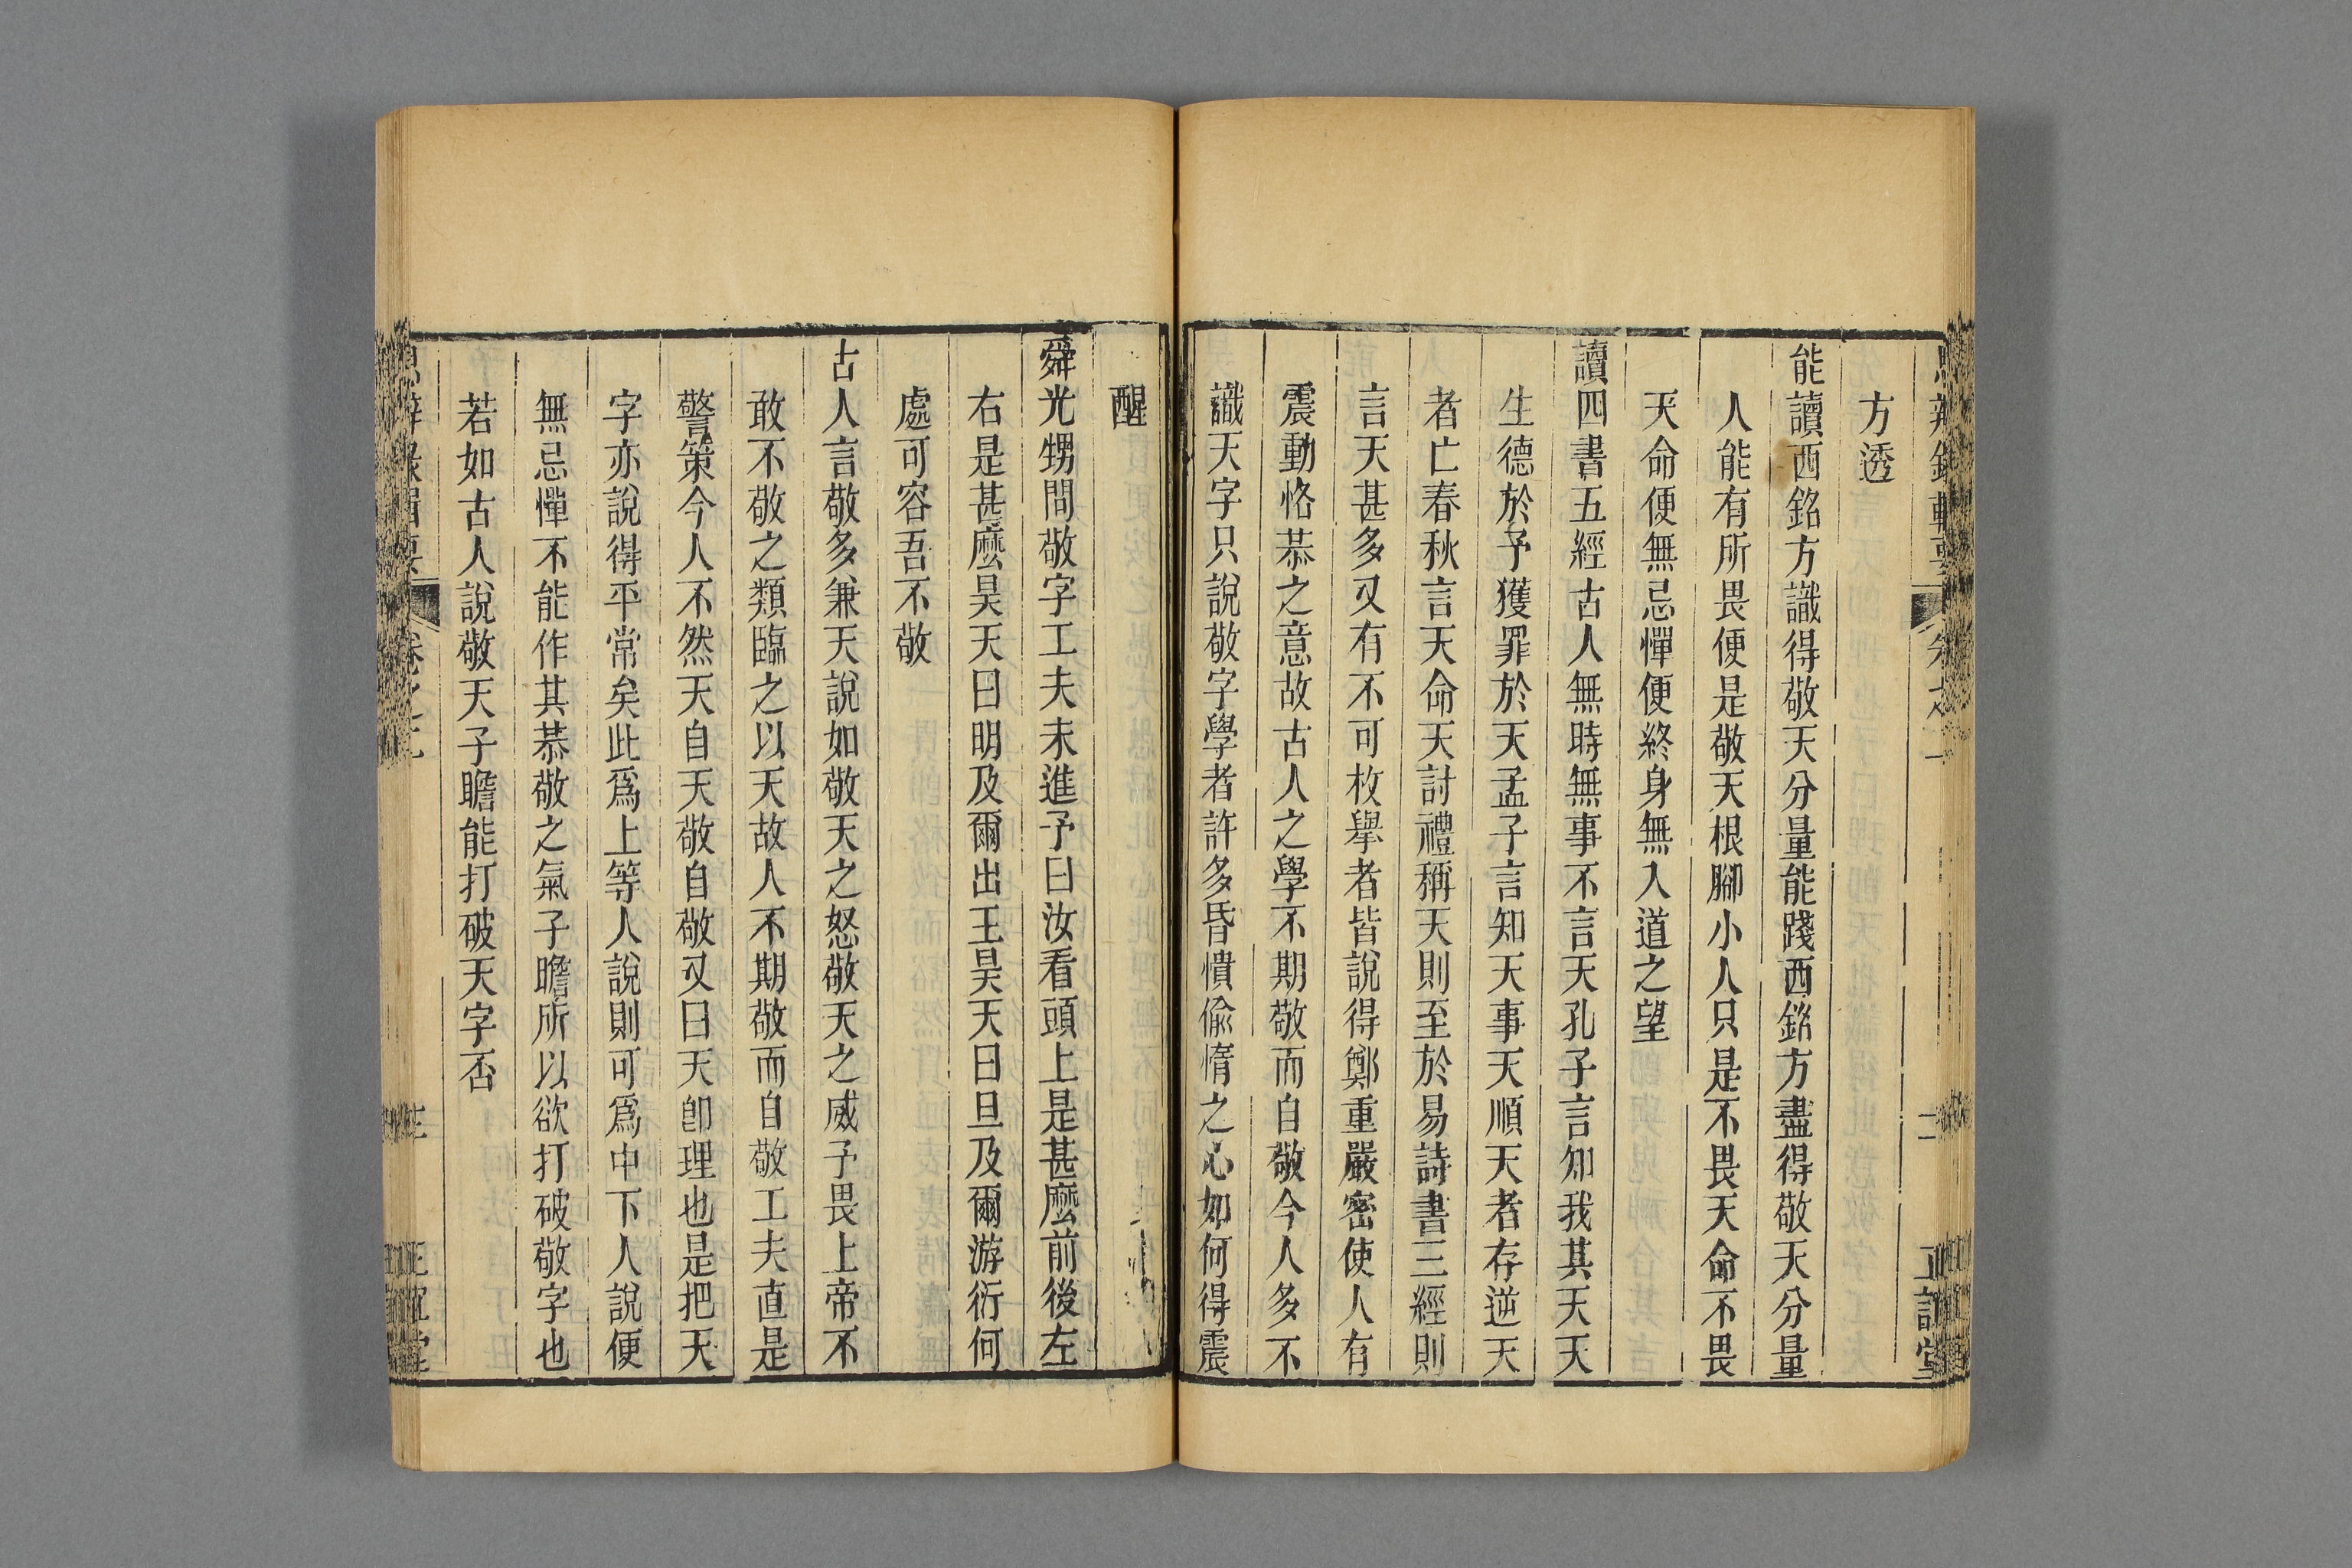 方透
能讀西銘方識得敬天分量能踐西銘方盡得敬天分量
人能有所畏便是敬天根腳小人只是不畏天命不畏
天命便無忌憚便終身無入道之望
讀四書五經古人無時無事不言天孔子言知我其天天
生德於予獲罪於天孟子言知天事天順天者存逆天
者亡春秋言天命天討禮稱天則至於易詩書三經則
言天甚多又有不可枚舉者皆說得鄭重嚴密使人有
震動恪恭之意故古人之學不期敬而自敬今人多不
識天字只說敬字學者許多昏憒偷惰之心如何得震
醒
舜光甥間敬字工夫未進予曰汝看頭上是甚麼前後左
右是甚麼昊天曰明及爾出王昊天曰旦及爾游衍何
處可容吾不敬
古人言敬多兼天說如敬天之怒敬天之威予畏上帝不
敢不敬之類臨之以天故人不期敬而自敬工夫直是
警策今人不然天自天敬自敬又曰天卽理也是把天
字亦說得平常矣此爲上等人說則可爲中下人說便
無忌憚不能作其恭敬之氣子瞻所以欲打破敬字也
若如古人說敬天子瞻能打破天字否